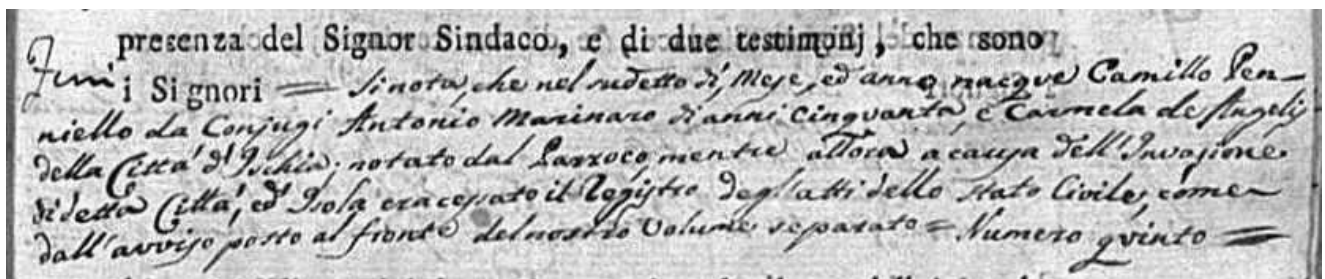 presenza del Signor Sindaco, e di due testimonj, che sono
i Signori = Si nota, che nel sudetto dì, Mese, ed anno nacque Camillo Pen-
niello da Conjugi Antonio Marinaro di anni cinquanta, e Carmela de Angelis
della Città d'Ischia; notato dal Parroco, mentre allora a causa dell'Invasione
di detta Città, ed Isola era cessato il Registro degl'atti dello stato Civile, come
dall'avviso posto al fronte del nostro Volume separato = Numero quinto =